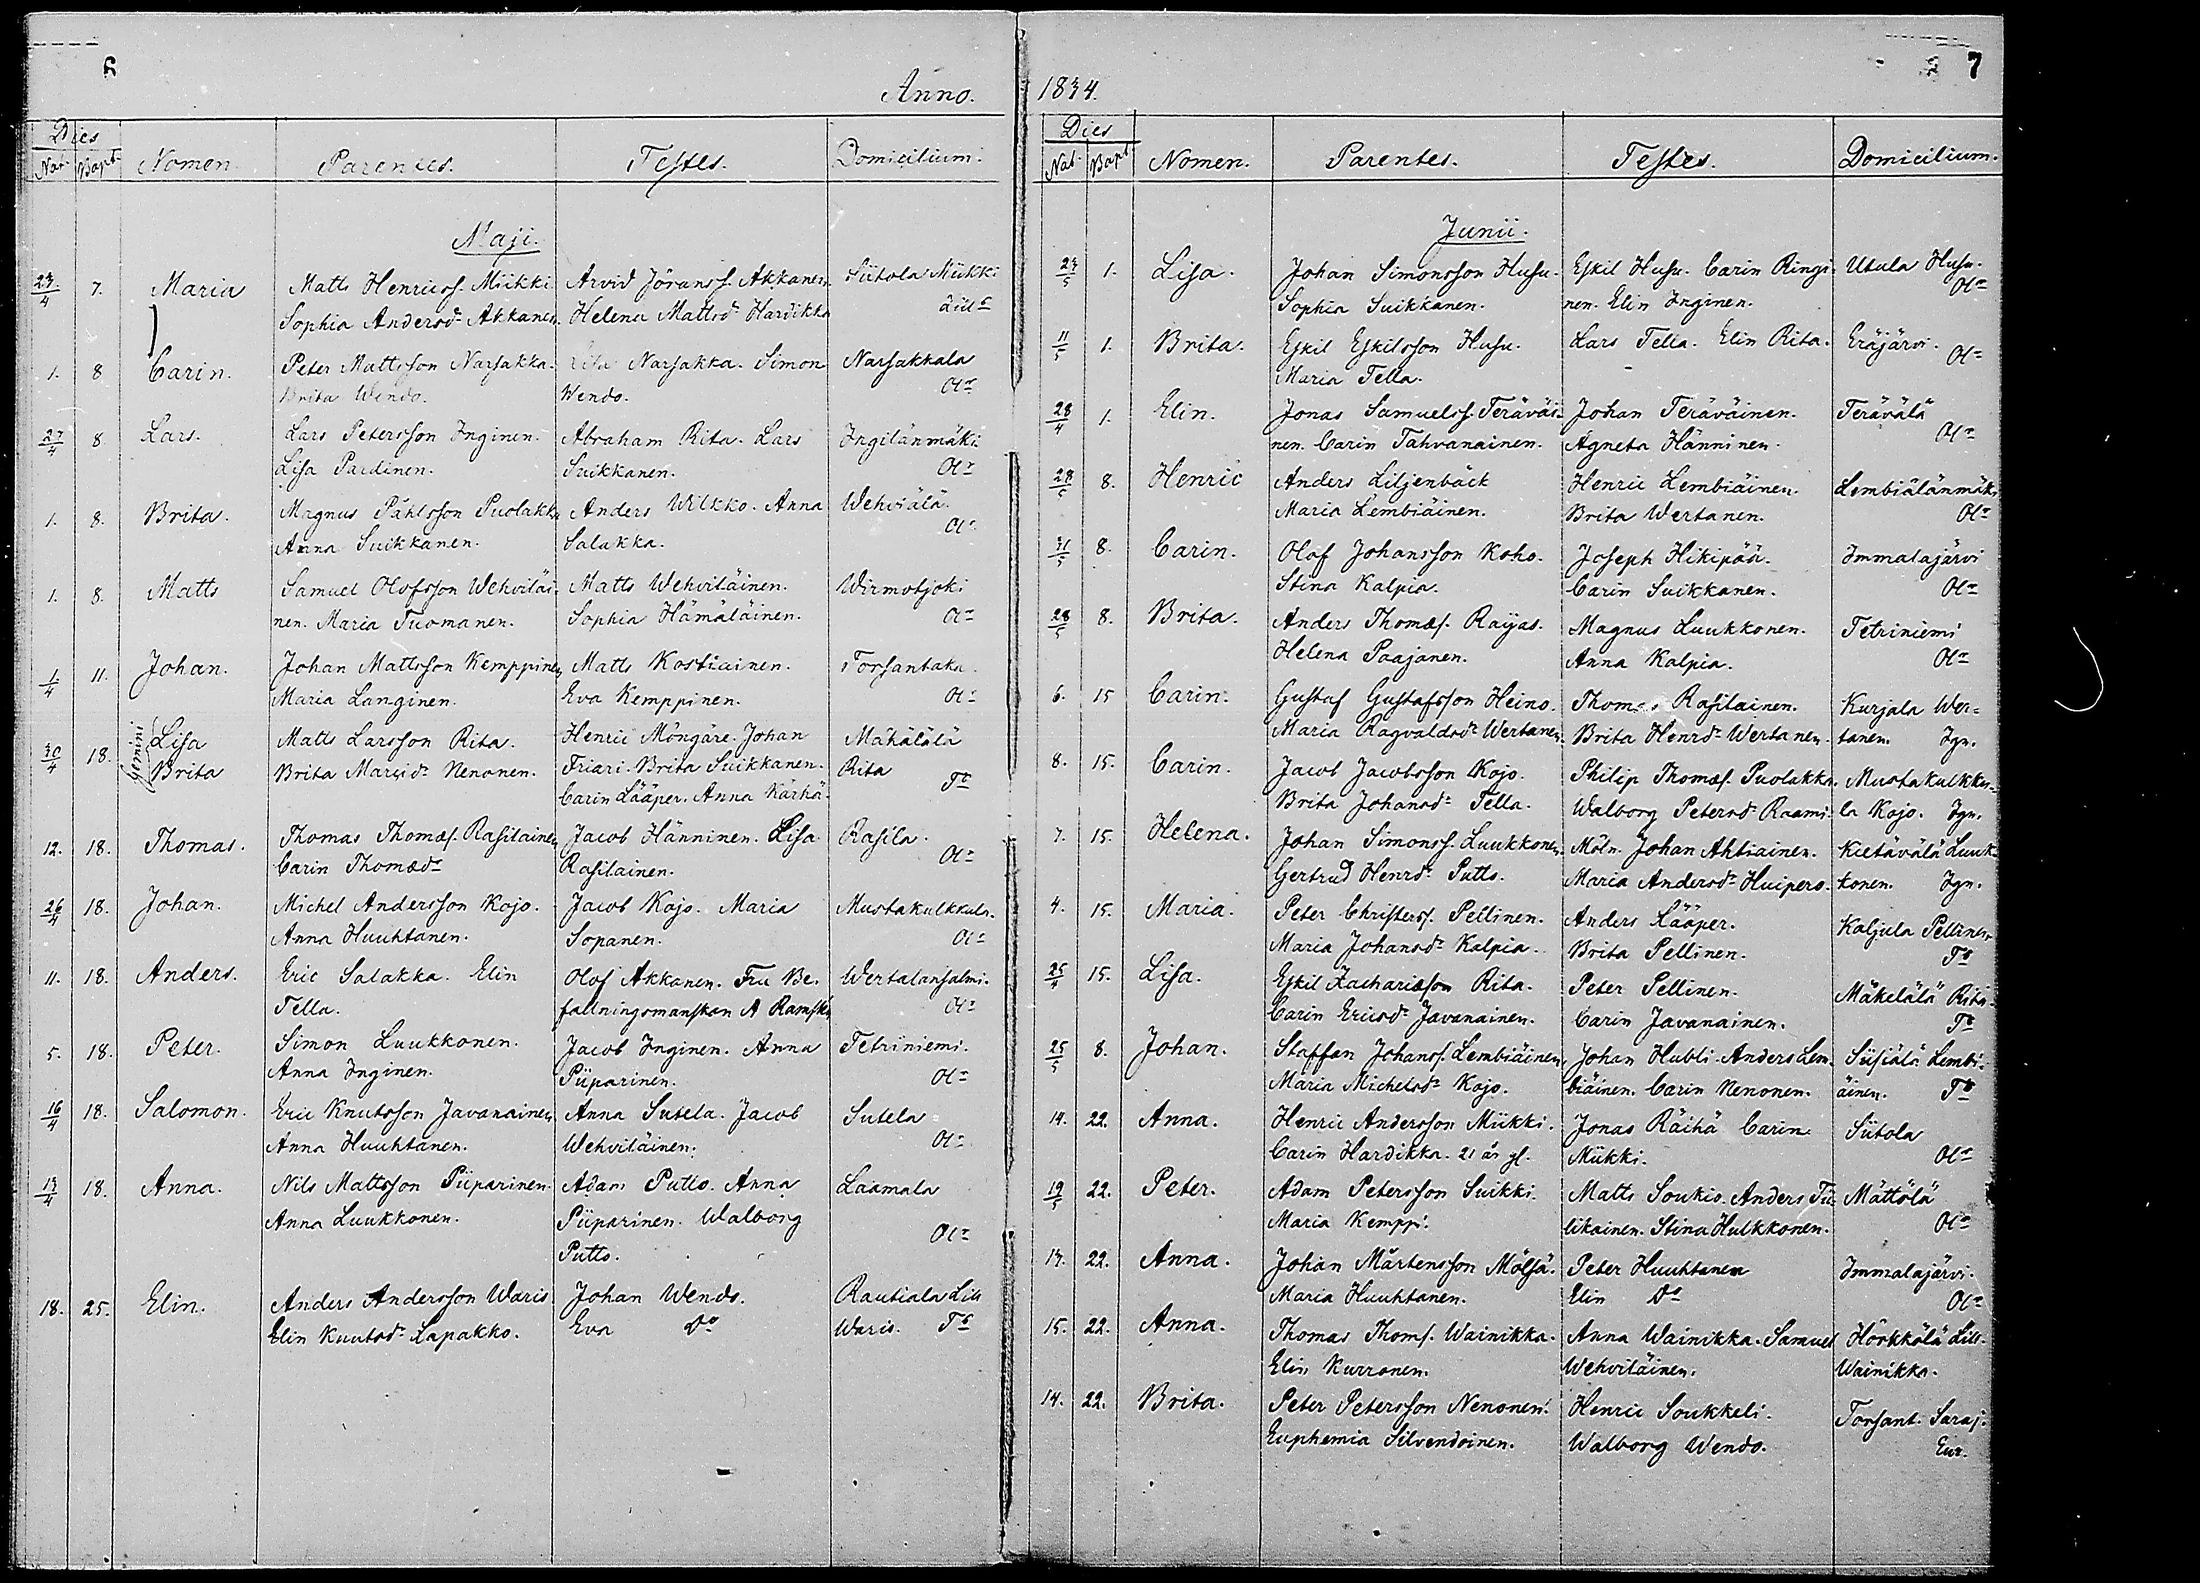 6
Anno.
Dies
Nat. Bapt. Nomen. Parentes. Testes. Domicilium.
Maji.
23/4 7. Maria Matts Henricss. Miikki Arvid Jöranss. Akkanen Siitola Miikki
Sophia Andersdr Akkanen. Helena Mattsdr Hardikka
1. 8 Carin. Peter Mattsson Narsakka. Narsakka. Simon Narsakkala
Brita Wendo. Wendo. Olr
27/4 8 Lars. Lars Petersson Inginen. Abraham Rita. Lars Ingilänmäki
Lisa Pardinen. Suikkanen. Olr
1. 8. Brita. Magnus Påhlsson Puolakka Anders Wilkko. Anna Wehviälä.
Anna Suikkanen. Salakka. Olr
1. 8. Matts Samuel Olofsson Wehviläi- Matts Wehviläinen. Wirmotjoki
nen. Maria Tuomanen. Sophia Hämäläinen. Olr
1/4 11. Johan. Johan Mattsson Kemppinen Matts Kostiainen. Torsantaka.
Maria Langinen. Eva Kemppinen. Olr
30/4 18. Gemini Lisa Matts Larsson Rita. Henric Möngäre. Johan Mähälälä
Brita Brita Marcidr Nenonen. Friari. Brita Suikkanen. Rita Tr
Carin Lääper. Anna Kärhä.
12. 18. Thomas. Thomas Thomæs. Rasilainen Jacob Hänninen. Lisa Rasila.
Carin Thomædr Rasilainen. Olr
26/4 18. Johan. Michel Andersson Kojo. Jacob Kojo. Maria Mustakulkkula.
Anna Huuhtanen. Sopanen. Olr
11. 18. Anders. Eric Salakka. Elin Olof Akkanen. Fru Be- Wertalansalmi.
Tella. fallningsmanskan A Ramsk Olr
5. 18. Peter. Simon Luukkonen. Jacob Inginen. Anna Tetriniemi.
Anna Inginen. Piiparinen. Olr
16/4 18. Salomon. Eric Knutsson Javanainen Anna Sutela. Jacob Sutela
Anna Huuhtanen. Wehviläinen. Olr
13/4 18. Anna. Nils Mattsson Piiparinen. Adam Putto. Anna Laamala
Anna Luukkonen. Piiparinen. Walborg Olr
Putto.
18. 25. Elin. Anders Andersson Waris Johan Wendo. Rautiala Lill
Elin Knutsdr Lapakko. Eva Do Waris. Tr
7
1834.
Dies
Nat. Bapt Nomen. Parentes. Testes. Domicilium.
Junii.
23/5 1. Lisa. Johan Simonsson Husu. Eskil Husu. Carin Ringi- Utula Husu.
Sophia Suikkanen. nen. Elin Inginen. Olr
11/5 1. Brita. Eskil Eskilsson Husu. Lars Tella. Elin Rita. Eräjärvi.
Maria Tella. Olr
28/4 1. Elin. Jonas Samuelss. Teräväi- Johan Teräväinen. Terävälä
nen. Carin Tahvanainen. Agneta Hänninen. Olr
28/5 8. Henric Anders Liljenbäck Henric Lembiäinen. Lembiälänmäki
Maria Lembiäinen. Brita Wertanen. Olr
31/5 8. Carin. Olof Johansson Koho. Joseph Hikipää. Immalajärvi
Stina Kalpia. Carin Suikkanen. Olr
28/5 8. Brita. Anders Thomæs. Raijas. Magnus Luukkonen. Tetriniemi
Helena Paajanen. Anna Kalpia. Olr
6. 15 Carin. Gustaf Gustafsson Heino. Thomas Rasilainen. Kurjala Wer-
Maria Ragvaldsdr Wertanen. Brita Henrdr Wertanen. tanen. Jgn.
8. 15. Carin. Jacob Jacobsson Kojo. Philip Thomæs. Puolakka. Mustakulkku-
Brita Johansdr Tella. Walborg Petersdr Raami. la Kojo. Jgn.
7. 15. Helena. Johan Simonss. Luukkonen. Möln. Johan Ahtiainen. Kietävälä Luuk-
Gertrud Henrdr Putto. Maria Andersdr Huipero. konen. Jgn.
4. 15. Maria. Peter Christerss. Pellinen. Anders Lääper. Kaljula Pellinen
Maria Johansdr Kalpia. Brita Pellinen. Tr
25/4 15. Lisa. Eskil Zachariæson Rita. Peter Pellinen. Mäkelälä Rita.
Carin Ericsdr Javanainen. Carin Javanainen. Tr
25/5 8. Johan. Staffan Johanss. Lembiäinen Johan Hubli. Anders Lem- Siisiälä Lembi-
Maria Michelsdr Kojo. biäinen. Carin Nenonen. äinen. Tr
14. 22. Anna. Henric Andersson Miikki. Jonas Räihä Carin Siitola
Carin Hardikka. 21 år gl. Miikki. Olr
19/5 22. Peter. Adam Petersson Suikki. Matts Soukio. Anders Tu- Mättölä
Maria Kemppi. likainen. Stina Hulkkonen. Olr
13. 22. Anna. Johan Mårtensson Mölsä. Peter Huuhtanen Immalajärvi.
Maria Huuhtanen. Elin Do Olr
15. 22. Anna. Thomas Thoms. Wainikka. Anna Wainikka. Samuel Hörkkölä Lill-
Elin Kurronen. Wehviläinen. Wainikka.
14. 22. Brita. Peter Petersson Nenonen. Henric Soukkeli. Torsant. Saraj.
Euphemia Silvendoinen. Walborg Wendo. Eur.